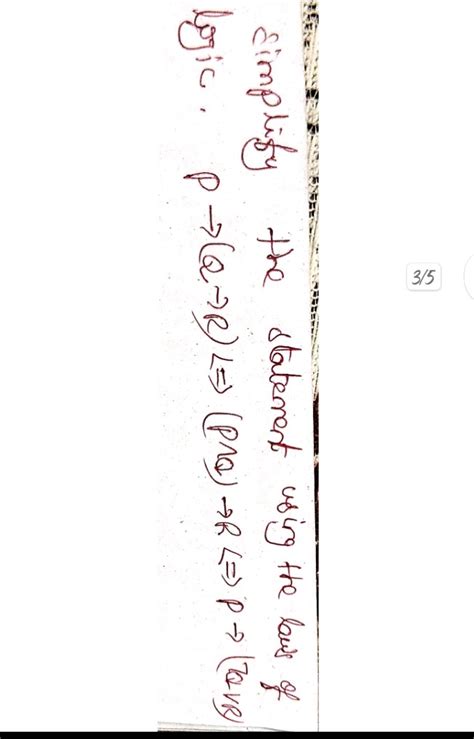 simplify the statement using the laws of
logic. P → (Q → R) <=> (P∧Q) → R <=> P → (¬Q∨R)
3/5